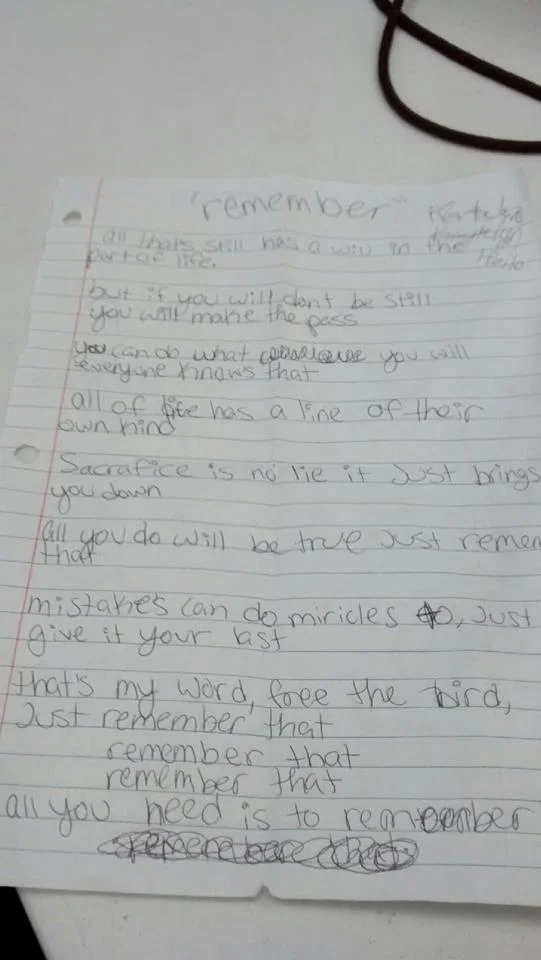 "remember"
all that's still has a will in the
part of life.
but if you will, dont be still
you will make the pass
you can do what you will
everyone knows that
all of life has a line of their
own kind
Sacrafice is no lie it Just brings
you down
all you do will be true Just remem
that
mistakes can do miricles to, Just
give it your last
that's my word, free the bird,
Just remember that
remember that
remember that
all you need is to remember